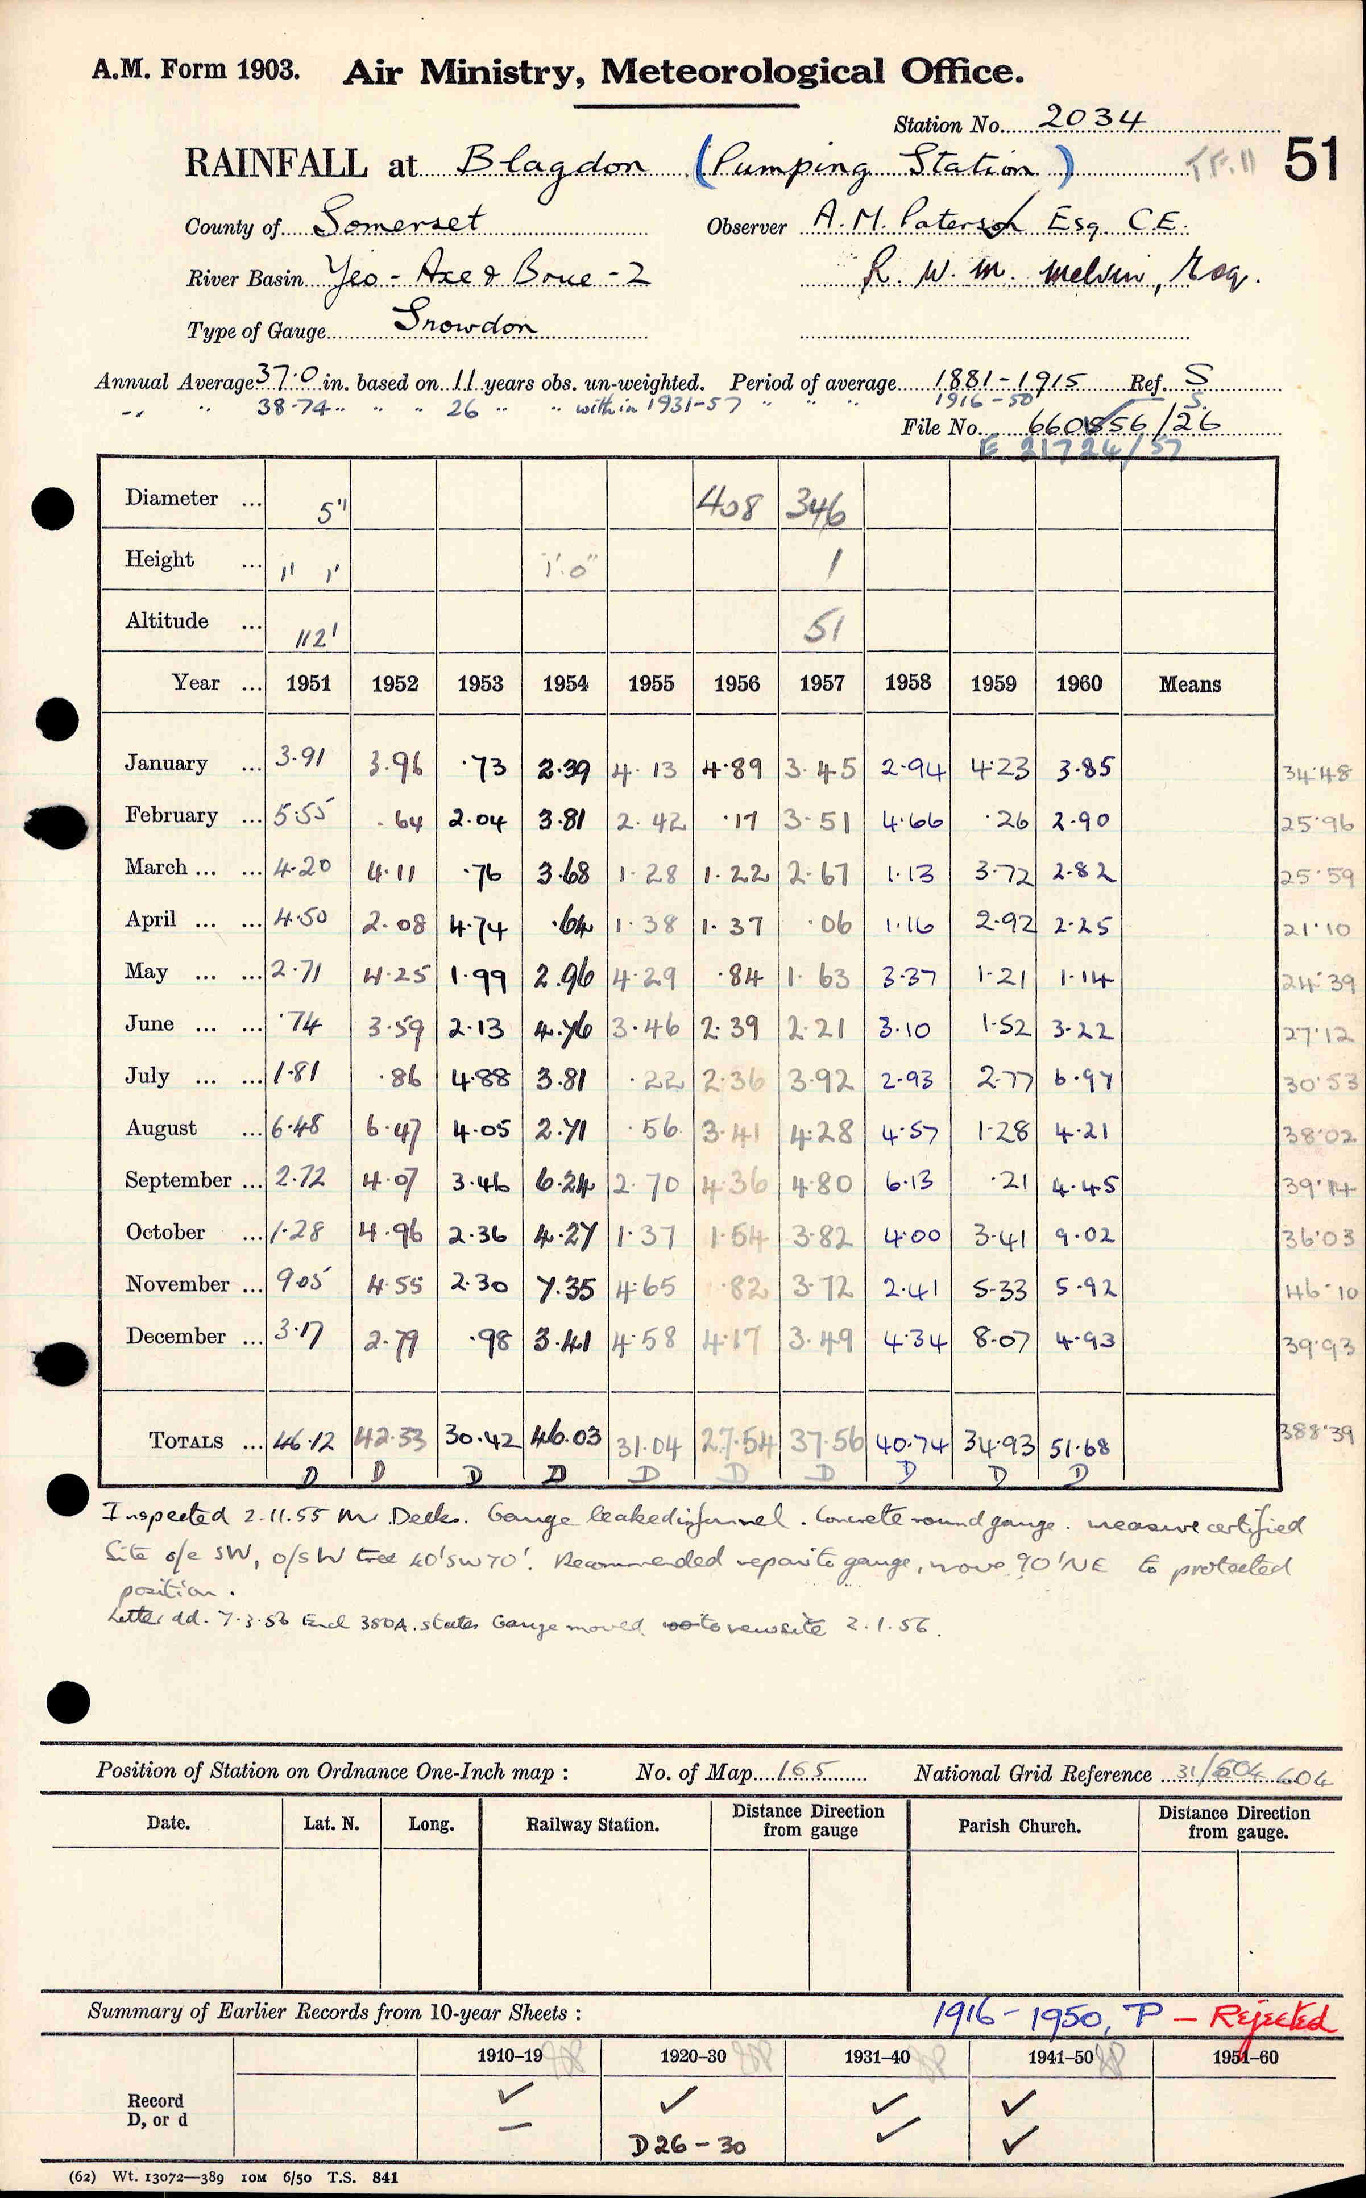 A.M. Form 1903. Air Ministry, Meteorological Office.
Station No. 2034
RAINFALL at Blagdon (Pumping Station) T.F.11 51
County of Somerset Observer A. M. Paterson Esq. C.E.
River Basin Yeo - Axe & Brue - 2 R. W. M. Melvin, Esq.
Type of Gauge Snowdon
Annual Average 37.0 in. based on 11 years obs. un-weighted. Period of average 1881-1915 Ref. S
" " 38.74 " " " 26 " " within 1931-57 " " " 1916-50 S.
File No. /26
E 21724/57
Diameter ... 5" 408 346
Height ... 1' 1' 1'.0" 1
Altitude ... 112' 51
Year ... 1951 1952 1953 1954 1955 1956 1957 1958 1959 1960 Means
January ... 3.91 3.96 .73 2.39 4.13 4.89 3.45 2.94 4.23 3.85 34.48
February ... 5.55 .64 2.04 3.81 2.42 .17 3.51 4.66 .26 2.90 25.96
March ... ... 4.20 4.11 .76 3.68 1.28 1.22 2.67 1.13 3.72 2.82 25.59
April ... ... 4.50 2.08 4.74 .64 1.38 1.37 .06 1.16 2.92 2.25 21.10
May ... ... 2.71 4.25 1.99 2.96 4.29 .84 1.63 3.37 1.21 1.14 24.39
June ... ... .74 3.59 2.13 4.76 3.46 2.39 2.21 3.10 1.52 3.22 27.12
July ... ... 1.81 .86 4.88 3.81 .22 2.36 3.92 2.93 2.77 6.97 30.53
August ... 6.48 6.47 4.05 2.71 .56 3.41 4.28 4.57 1.28 4.21 38.02
September ... 2.72 4.07 3.46 6.24 2.70 4.36 4.80 6.13 .21 4.45 39.14
October ... 1.28 4.96 2.36 4.27 1.37 1.54 3.82 4.00 3.41 9.02 36.03
November ... 9.05 4.55 2.30 7.35 4.65 .82 3.72 2.41 5.33 5.92 46.10
December ... 3.17 2.79 .98 3.41 4.58 4.17 3.49 4.34 8.07 4.93 39.93
TOTALS ... 46.12 42.33 30.42 46.03 31.04 27.54 37.56 40.74 34.93 51.68 388.39
D D D D D D D D D D
Inspected 2.11.55 Mr. Gauge leaked in funnel. Concrete round gauge. measure certified
Site o/e SW, o/s W tree 40' SW 70'. Recommended repair to gauge, move 90' NE to protected
position.
Letter dd. 7.3.56 Encl 380A. states Gauge moved to new site 2.1.56.
Position of Station on Ordnance One-Inch map : No. of Map 165 National Grid Reference 31/504 604
Date. Lat. N. Long. Railway Station. Distance Direction from gauge Parish Church. Distance Direction from gauge.
Summary of Earlier Records from 10-year Sheets : 1916-1950, P - Rejected
1910-19 1920-30 1931-40 1941-50 1951-60
Record ✓ ✓ ✓ ✓
D, or d — D 26-30 ✓ ✓
(62) Wt. 13072—389 10M 6/50 T.S. 841